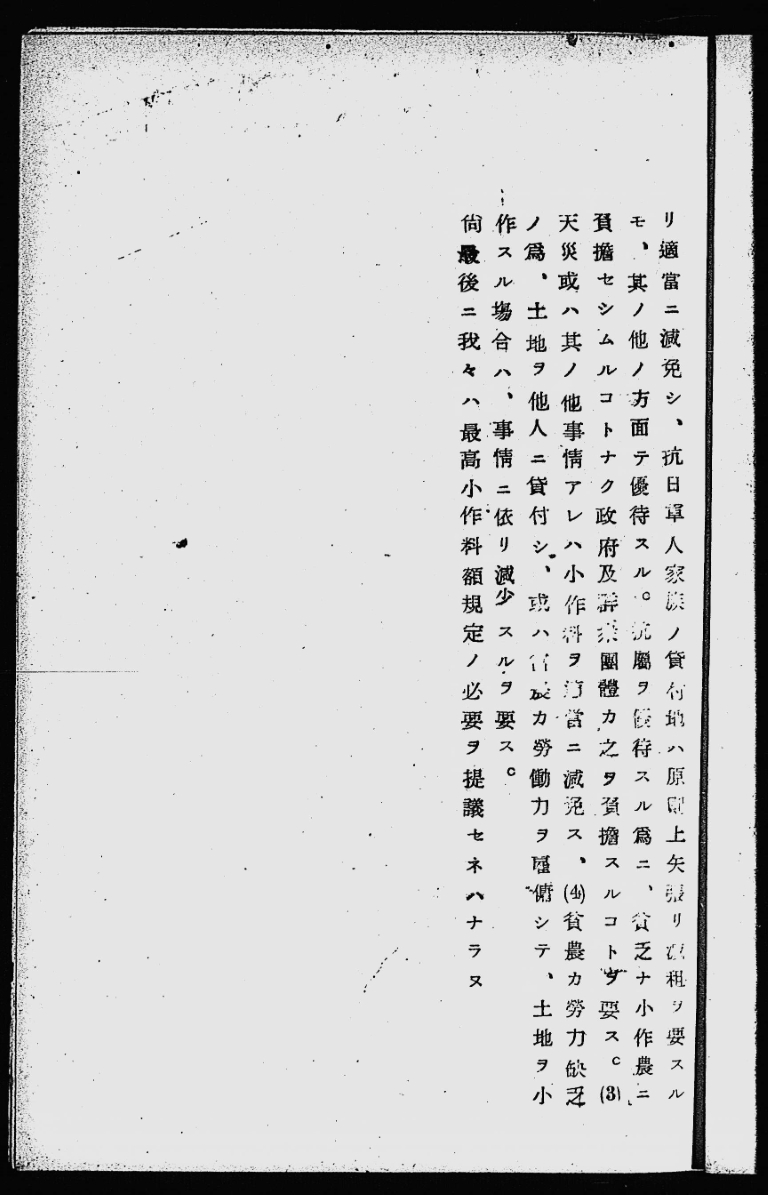 リ適當ニ減免シ、抗日軍人家族ノ貸付地ハ原則上矢張リ減租ヲ要スル
モ、其ノ他ノ方面テ優待スル。抗屬ヲ優待スル爲ニ、貧乏ナ小作農ニ
負擔セシムルコトナク政府及群衆團體カ之ヲ負擔スルコトヲ要ス。(3)
天災或ハ其ノ他事情アレハ小作料ヲ適當ニ減免ス、(4)貧農カ勞力缺乏
ノ爲、土地ヲ他人ニ貸付シ、或ハカ勞働力ヲ雇傭シテ、土地ヲ小
作スル場合ハ、事情ニ依リ減少スルヲ要ス。
尙最後ニ我々ハ最高小作料額規定ノ必要ヲ提議セネハナラヌ